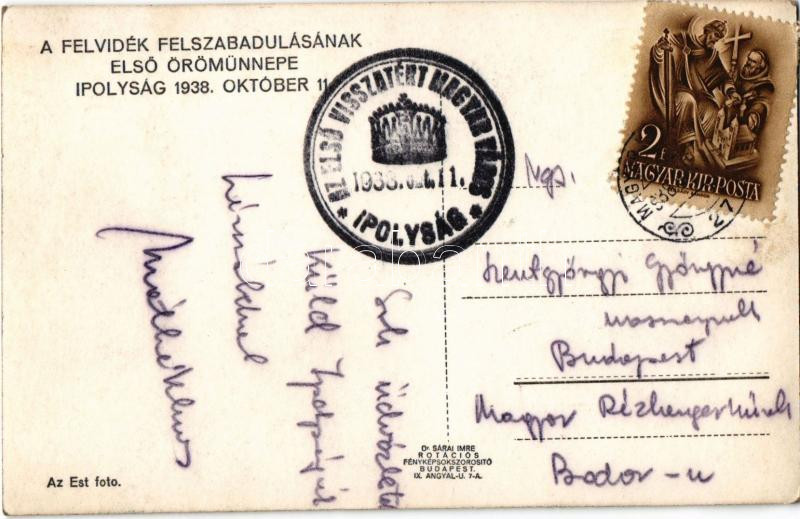 A FELVIDÉK FELSZABADULÁSÁNAK
ELSŐ ÖRÖMÜNNEPE
IPOLYSÁG 1938. OKTÓBER 11
AZ ELSŐ VISSZATÉRT MAGYAR VÁROS
1938. Okt. 11.
* IPOLYSÁG *
2f
MAGYAR KIR. POSTA
Ngs.
Szentgyörgyi Györgyné
Budapest
Magyar Rézhengerművek
Bodor-u
Sok üdvözletet
küld Ipolyságról
Dr SÁRAI IMRE
ROTÁCIÓS
FÉNYKÉPSOKSZOROSITÓ
BUDAPEST.
IX. ANGYAL-U. 7-A.
Az Est foto.